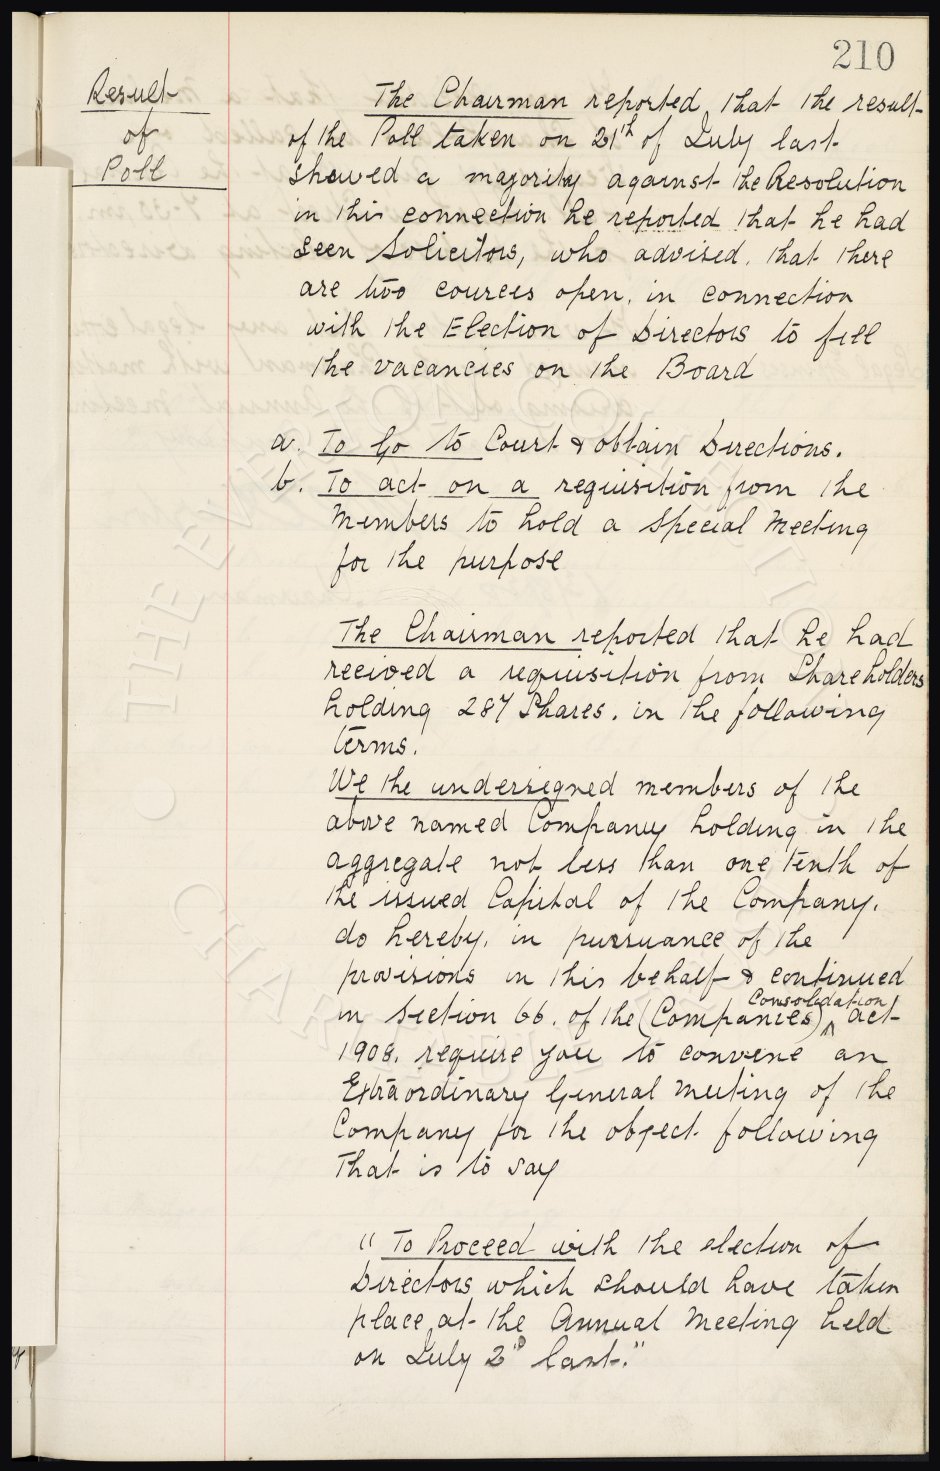 210
Result
of
Poll
The Chairman reported, that the result
of the Poll taken on 21st of July last
showed a majority against the Resolution
in this connection he reported that he had
seen Solicitors, who advised. that there
are two cources open. in connection
with the Election of Directors to fill
the vacancies on the Board
a. To Go to Court & obtain Directions.
b. To act on a requisition from the
Members to hold a Special Meeting
for the purpose
The Chairman reported that he had
recieved a requisition from Shareholders
holding 287 Shares. in the following
terms.
We the undersigned members of the
above named Company holding in the
aggregate not less than one tenth of
the issued Capital of the Company.
do hereby. in pursuance of the
provisions in this behalf & continued
in Section 66. of the (Companies) Consolidation act
1908. require you to convene an
Extraordinary General Meeting of the
Company for the object following
that is to say
"To Proceed with the election of
Directors, which should have taken
place, at the Annual Meeting held
on July 2nd last."